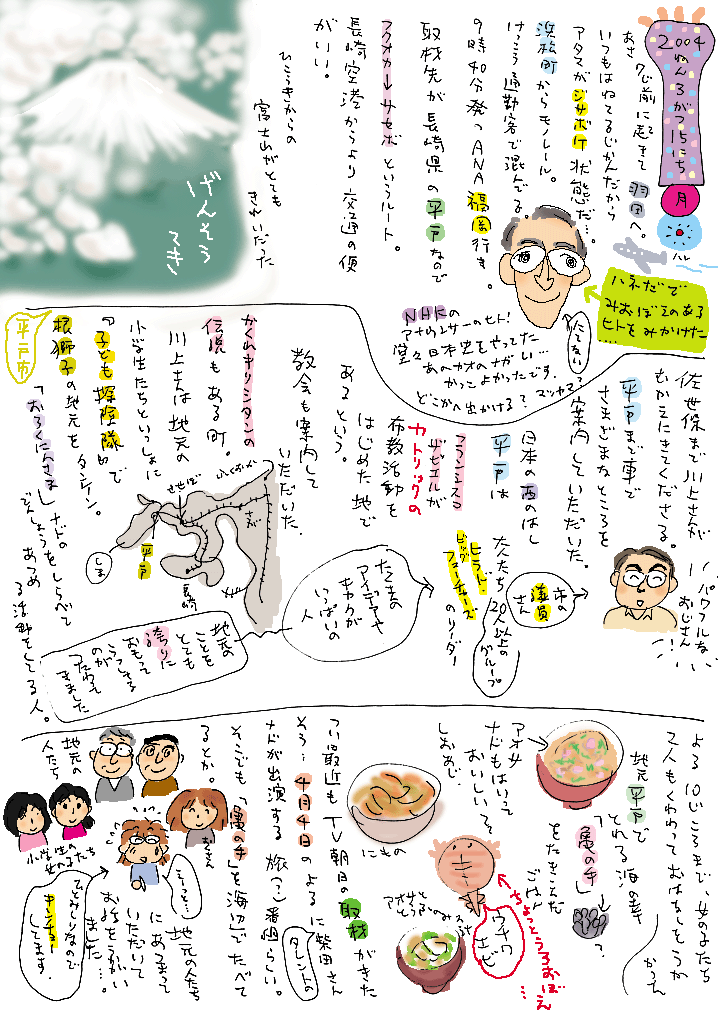 2004ねん3がつ15にち
月
ハレ
あさ 7じ前に起きて 羽田へ。
いつもはねてるじかんだから
アタマがジサボケ状態だ…。
浜松町からモノレール。
けっこう通勤客で混んでる。
9時40分発のANA福岡行き。
取材先が長崎県の平戸なので
フクオカ→サセボというルート。
長崎空港からより交通の便
がいい。
ひこうきからの
富士山がとても
きれいだった
げんそう
てき
ハネだで
みおぼえのある
ヒトをみかけた…
にてない
NHKの
アナウンサーのヒト!
堂々日本史をやってた
あのカオのナガい…
かっこよかったです。
どこかへ出かける?
佐世保まで川上さんが
むかえにきてくださる。
平戸まで車で
さまざまなところを
案内していただいた。
パワフルな
おじさん!
日本の西のはし
平戸は
フランシスコ
ザビエルが
カトリックの
布教活動を
はじめた地で
あるという。
教会も案内して
いただいた。
市の
議員
さん
大人たち
20人以上の
グループ
ヒラド・
ビッグ
フューチャーズ
のリーダー
たくさんの
アイデアや
キカクが
いっぱいの
人
かくれキリシタンの
伝説もある町。
川上さんは地元の
小学生たちといっしょに
「子ども探険隊」で
根獅子の地元をタンケン。
平戸市
「おろくにんさま」ナドの
でんしょうをしらべて
あつめ
る活動をしてる人。
させぼ
さが
平戸
長崎
しま
地元の
ことを
とても
誇りに
おもって
らっしゃる
のが
つたわって
きました
よる10じころまで、女の子たち
2人もくわわっておはなしをうかがった
地元平戸で
とれる海の幸
「亀の手」
?
をたきこんだ
ごはん
アオサ
ナドもはいって
おいしい〜
しおあじ。
にもの
アオサと
とうふのみそ汁
ウチワ
エビ
ちょっとうろおぼえ…
つい最近もTV朝日の取材がきた
そう… 4月4日のよるに柴田さん
タレントの
ナドが出演する旅(?)番組らしい。
そこでも「亀の手」を海辺でたべて
るとか。
地元の
人たち
小学生の
女の子たち
おくさん
えーっと…
地元の人たち
にあつまって
いただいて
お話をうかがい
ました…。
ひさびさなので
キンチョー
してます。